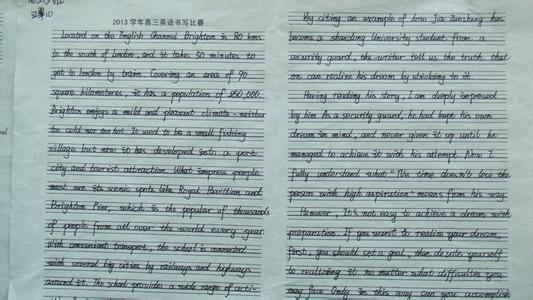 2013学年高三英语书写比赛
Located on the English Channel Brighton is 80 kms
to the south of London, and it takes 50 minutes to
get to London by train. Covering an area of 90
square kilometares, it has a population of 250,000.
Brighton enjoys a mild and pleasant climate - neither
too cold nor too hot. It used to be a small fishing
village but now it has developed into a port
city and tourist attraction. What impress people
most are its scenic spots like Royal Pavilion and
Brighton Pier, which is the popular of thousands
of people from all over the world every year
With convenient transport, the school is connected
with several big cities by railways and highways
around it. The school provides a wide range of acti-
By citing an example of how Jia Zuosheng has
become a shandong University student from a
security guard, the writer tell us the truth that
on can realize his dream by sticking to it
Having reading his story, I am deeply impressed
by him As a security guard, he had kept his own
dream in mind, and never given it up until he
managed to achieve it with his attempt. Now I
fully understand what "The time doesn't lose the
person with high aspiration" means from his way.
However, It's not easy to achieve a dream with
preparation. If you want to realize your dream,
first, you should set a goal, then devote yourself
to realizing it no matter what difficulties you
may face Only in this way can you accomplish